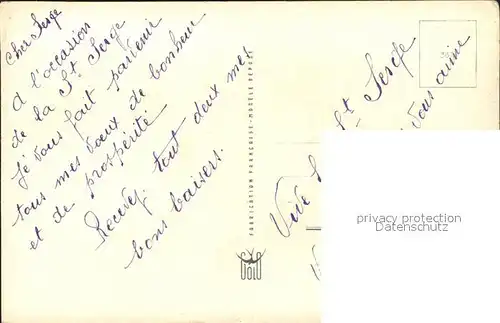 Cher Serge
A l'occasion
de la St Serge
Je vous fait parvenir
tous mes vœux de bonheur
et de prospérité
Recevez tout doux mes
bons baisers.
FABRICATION FRANÇAISE - MODÈLE DÉPOSÉ
Vive St Serge
vous aime
privacy protection
Datenschutz